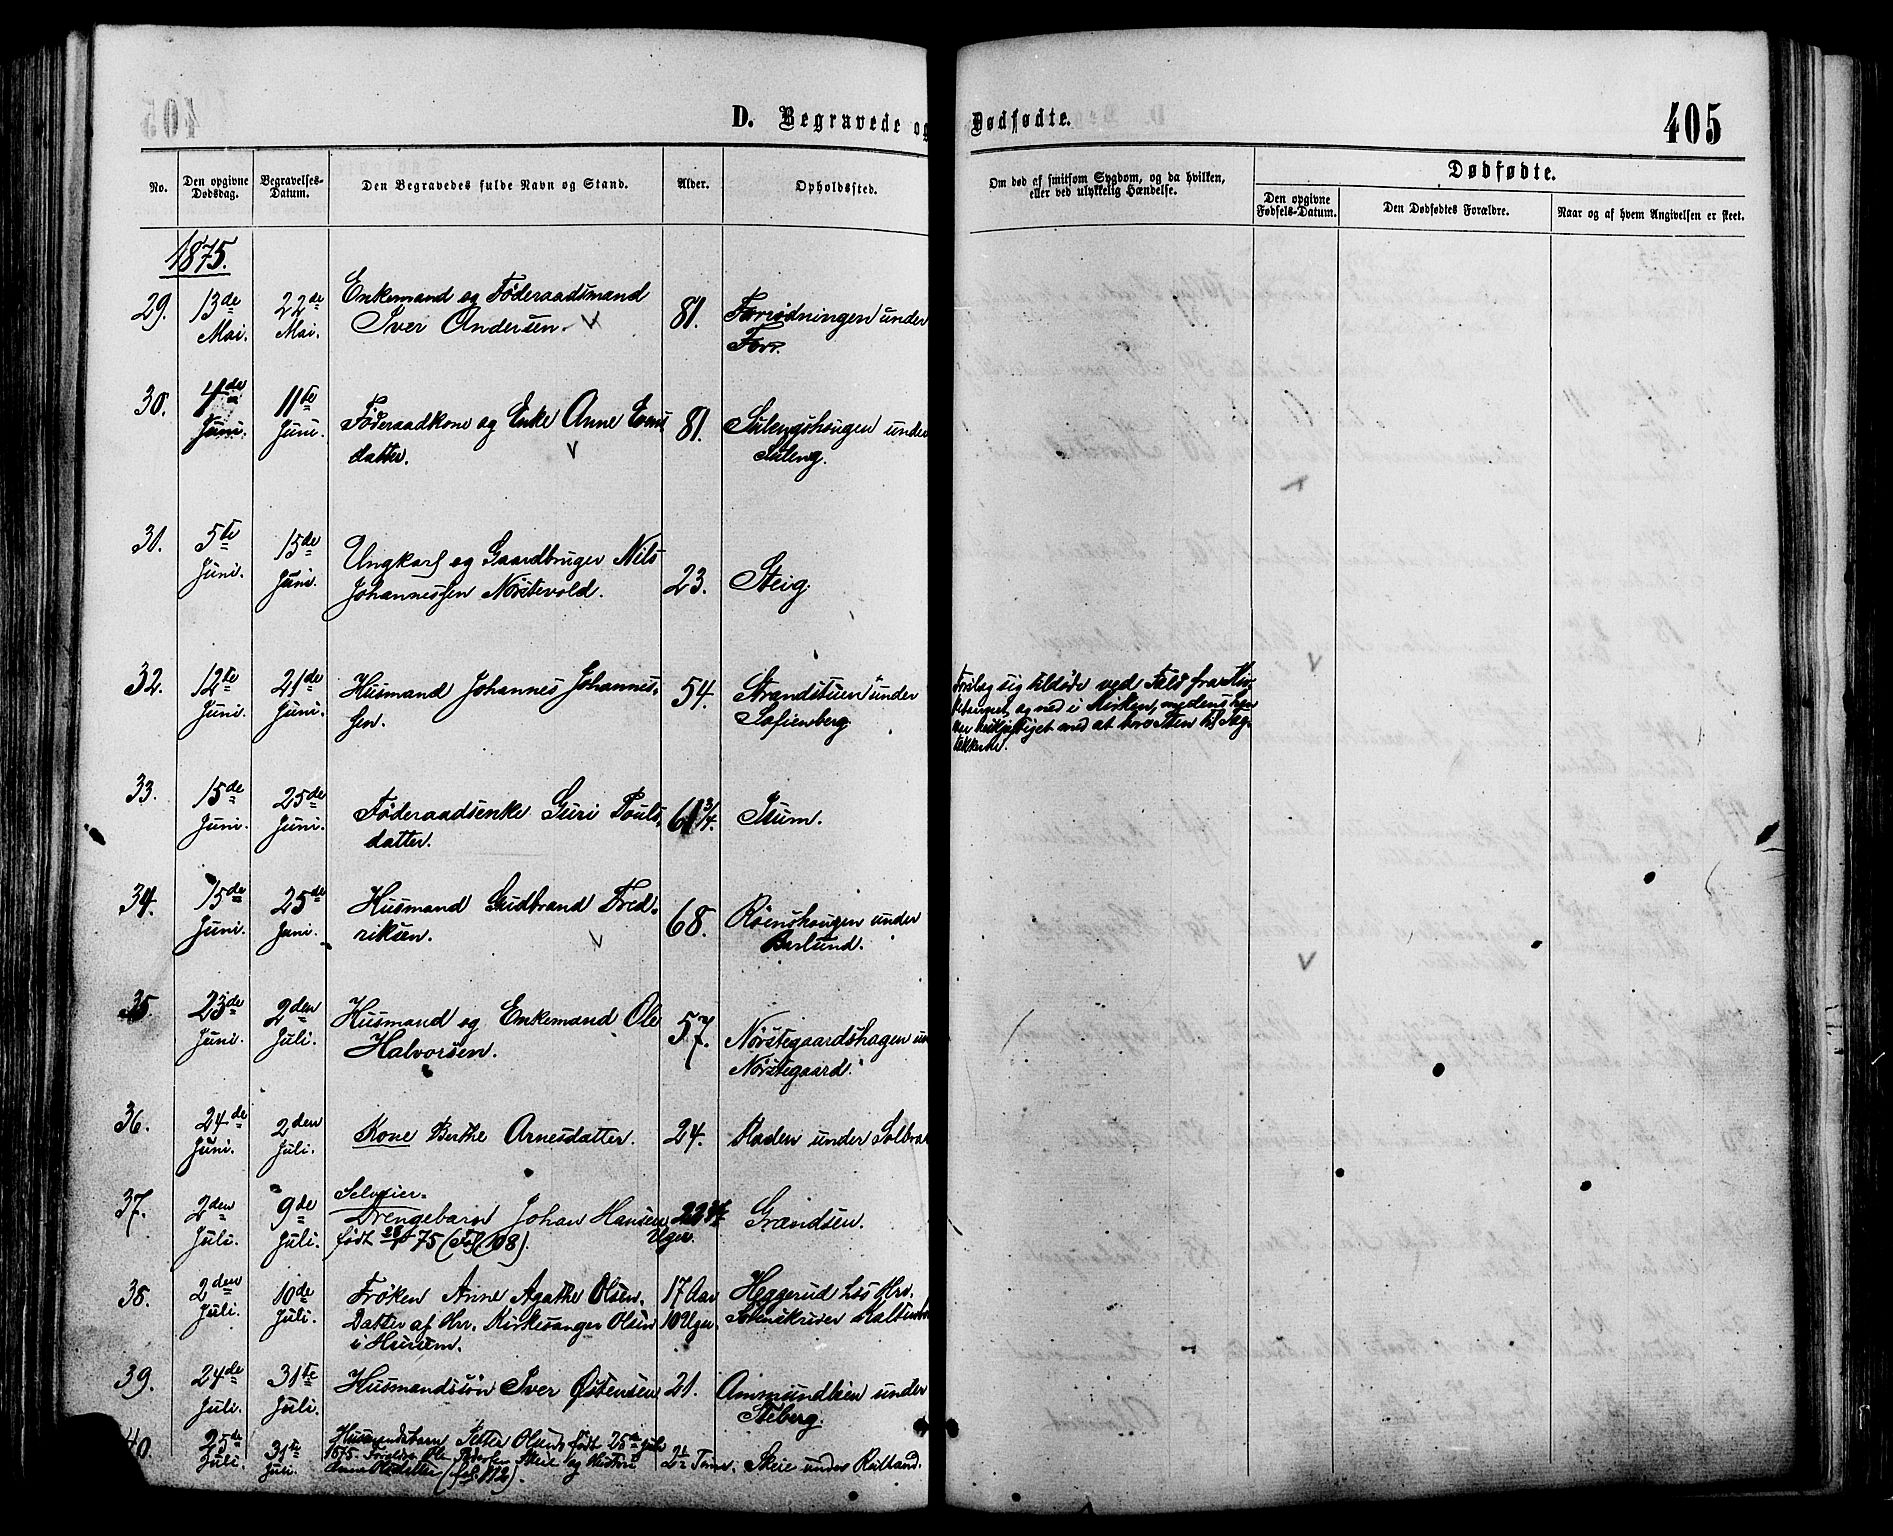 D. Begravede og Dødfødte.
405
No.
Den opgivne Dødsdag.
Begravelses-Datum.
Den Begravedes fulde Navn og Stand.
Alder.
Opholdssted.
Om død af smitsom Sygdom, og da hvilken,
eller ved ulykkelig Hændelse.
Dødfødte.
Den opgivne Fødsels-Datum.
Den Dødfødtes Forældre.
Naar og af hvem Angivelsen er skeet.
1875.
29. 13de Mai. 22de Mai.
Enkemand og Føderaadsmand
Iver Andersen.
81.
under
Forr.
30. 4de Juni. 11te Juni.
Føderaadkone og Enke Anne
datter.
81.
Sülengshougen under
Süleng.
31. 5te Juni. 15de Juni.
Ungkarl og Gaardbruger Nils
Johannessen Nørstevold.
23.
Steig.
32. 12te Juni. 21de Juni.
Husmand Johannes Johannes-
sen.
54.
Strandstuen under
Sofienberg.
sig tildøde ved Fald fra
og ned i Kirken, medens han
var beskjæftiget med at
33. 15de Juni. 25de Juni.
Føderaadsenke Guri Pouls-
datter.
61 3/4.
Isum.
34. 15de Juni. 25de Juni.
Husmand Gudbrand Fred-
riksen.
68.
Röenshougen under
Barlund.
35. 23de Juni. 2den Juli.
Husmand og Enkemand Ole
Halvorsen.
57.
Nörstegaardshagen un
Nörstegaard.
36. 24de Juni. 2den Juli.
Kone Berthe Arnesdatter.
24.
Raden under Solbra
37. 2den Juli. 9de Juli.
Selveier-
Drengebarn Johan Hansen
født 75 (Fol. 108).
Uger.
Grandsen.
38. 2den Juli. 10de Juli.
Frøken Anne Agathe Olsen.
Datter af Hrr. Kirkesanger Olsen
i Hurum.
17 Aar
10 Uger
Heggerud hos Hrr.
Sorenskriver
39. 24de Juli. 31te Juli.
Husmandssön Iver Østensen
21.
Ammundlien under
Steberg.
40. 25de Juli. 31te Juli.
Husmandsbarn Olsen født 25de Juli
1875. Forældre Ole Pedersen Skeie og Hustru
2½ Time.
Skeie under